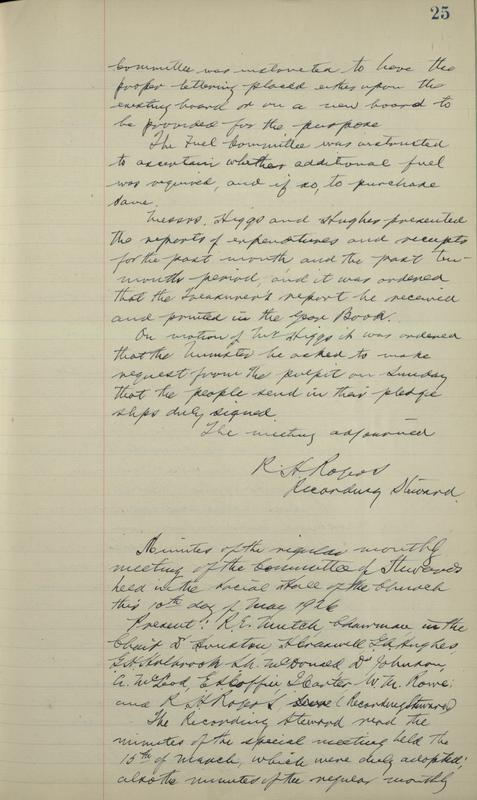 25
Committee was instructed to have the
proper lettering placed either upon the
existing board or on a new board to
be provided for the purpose
The Fuel Committee was instructed
to ascertain whether additional fuel
was required, and if so, to purchase
same.
Messrs. Higgs and Hughes presented
the reports of expenditures and receipts
for the past month and the past ten-
month period, and it was ordered
that the Treasurer's report be received
and printed in the Year Book.
On motion of Mr Higgs it was ordered
that the Minister be asked to make
request from the pulpit on Sunday
that the people send in their pledge
slips duly signed
The meeting adjourned
R. H. Rogers
Recording Steward.
Minutes of the regular monthly
meeting of the Committee of Stewards
held in the Social Hall of the Church
this 10th day of May 1926
Present: R. E. Mutch Chairman in the
Chair Dr Houston, Hughes,
G. H. Holbrook McDonald, Dr Johnson,
A. McLeod, Coffin, J Carter W. M. Rowe;
and R H Rogers (Recording Steward)
The Recording Steward read the
minutes of the special meeting held the
15th of March, which were duly adopted;
also the minutes of the regular monthly